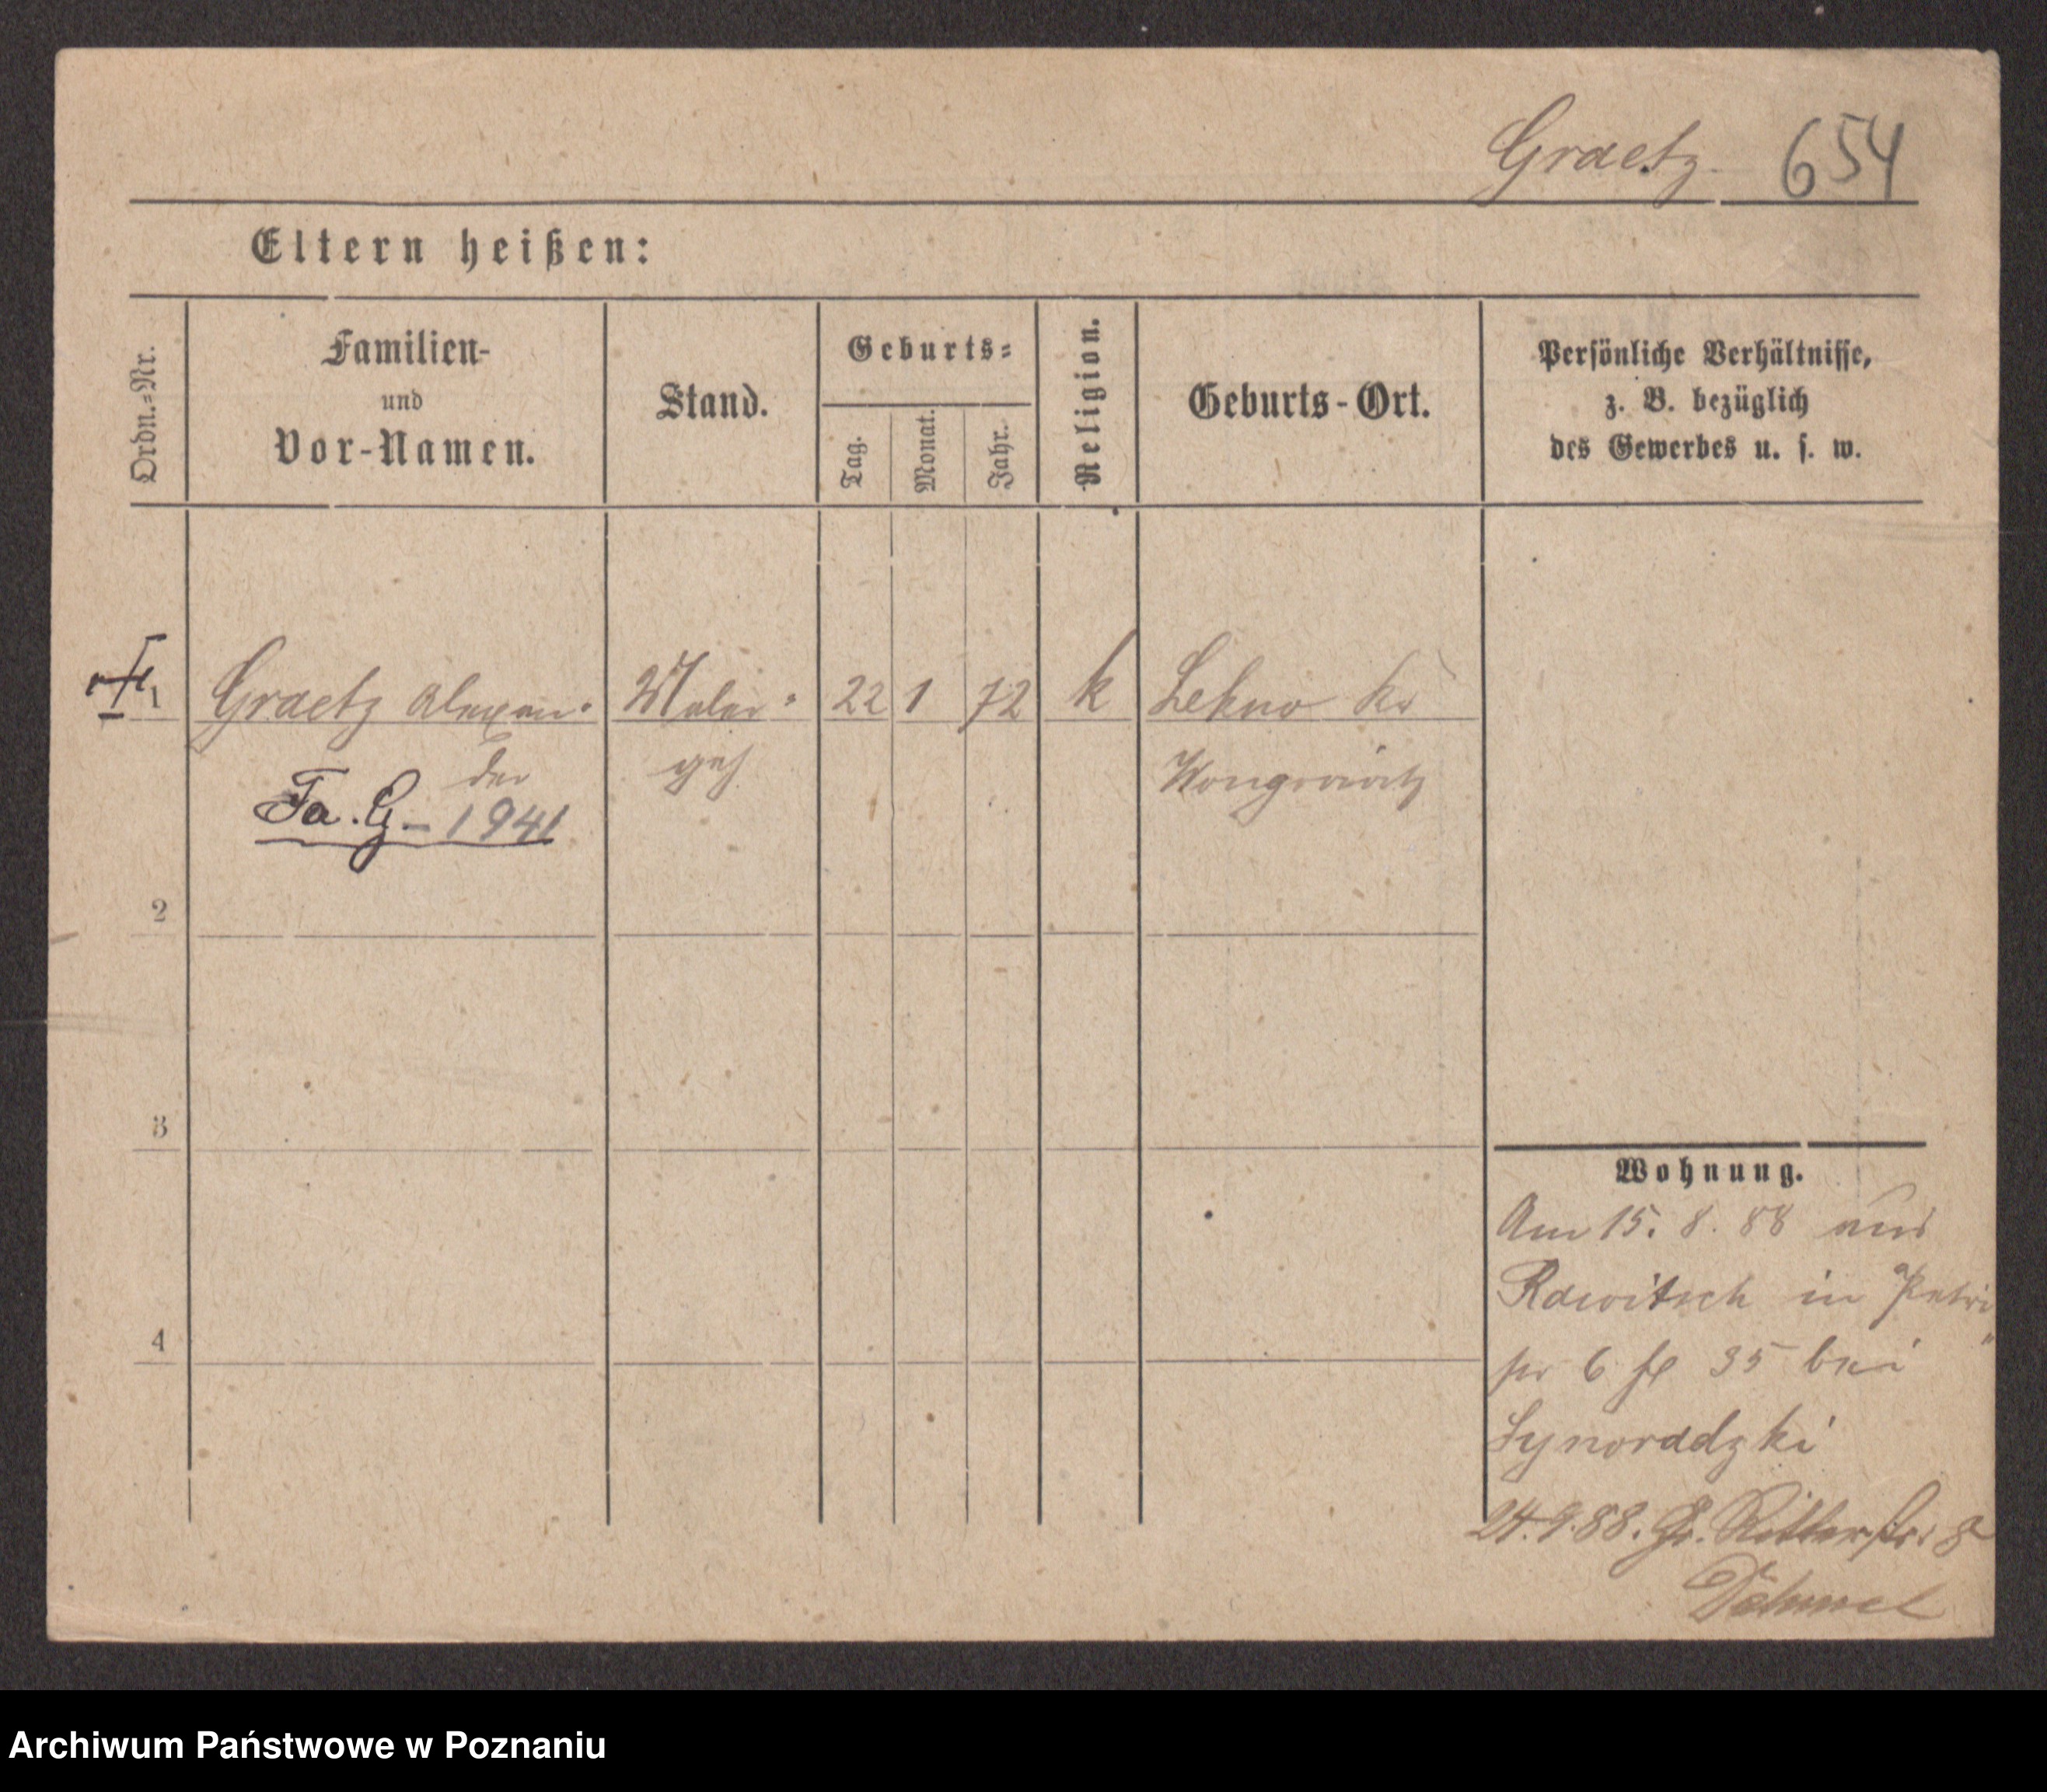 Graetz. 654
Eltern heißen:
Ordn.=Nr.
Familien-
und
Vor-Namen.
Stand.
Geburts=
Tag.
Monat.
Jahr.
Religion.
Geburts-Ort.
Persönliche Verhältnisse,
z. B. bezüglich
des Gewerbes u. s. w.
1 Graetz Alexan- Maler- 22 1 72 k Lekno Kr
der geh Wongrowitz
Fa. G-1941
2
3
4
Wohnung.
Am 15. 8. 88 aus
Rawitsch in Petri
str 6 35 bei
24.9.88. Gr. Ritterstr. 8
Archiwum Państwowe w Poznaniu